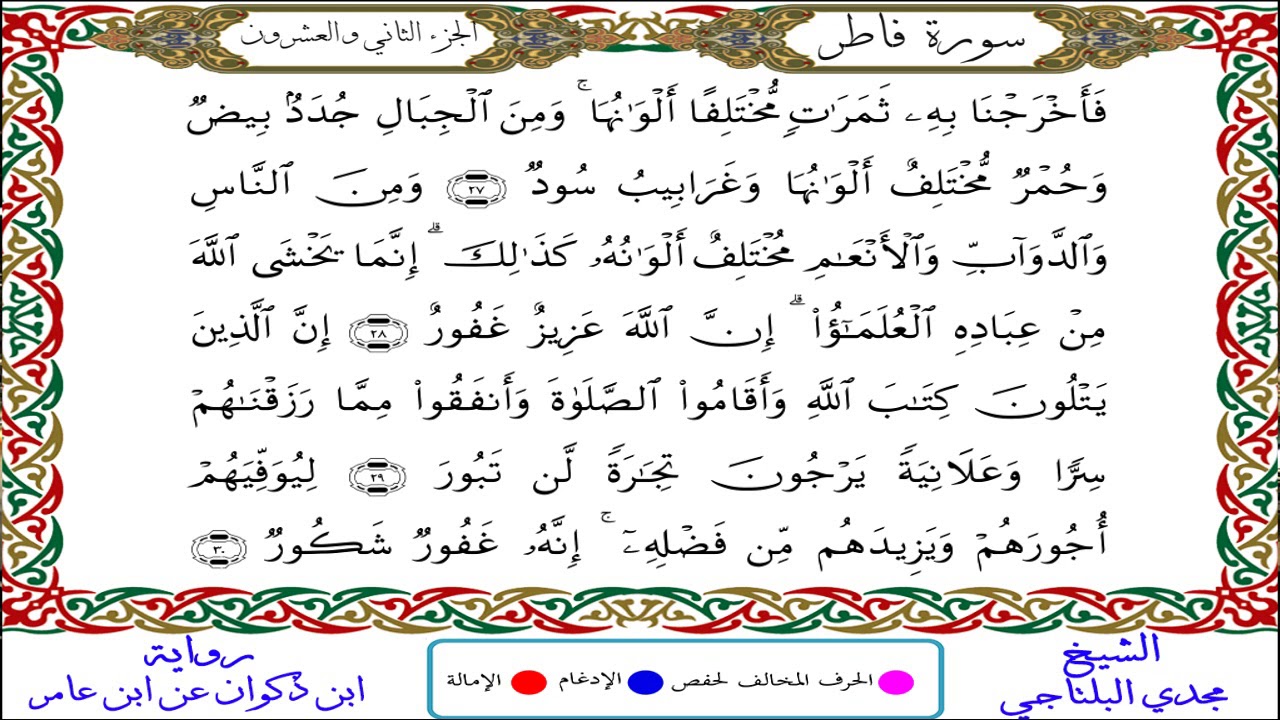 سورة فاطر
الجزء الثاني والعشرون
فَأَخْرَجْنَا بِهِۦ ثَمَرَٰتٖ مُّخْتَلِفًا أَلْوَٰنُهَاۚ وَمِنَ ٱلْجِبَالِ جُدَدُۢ بِيضٞ
وَحُمْرٞ مُّخْتَلِفٌ أَلْوَٰنُهَا وَغَرَابِيبُ سُودٞ ٢٧ وَمِنَ ٱلنَّاسِ
وَٱلدَّوَآبِّ وَٱلْأَنْعَٰمِ مُخْتَلِفٌ أَلْوَٰنُهُۥ كَذَٰلِكَۗ إِنَّمَا يَخْشَى ٱللَّهَ
مِنْ عِبَادِهِ ٱلْعُلَمَٰٓؤُا۟ۗ إِنَّ ٱللَّهَ عَزِيزٌ غَفُورٌ ٢٨ إِنَّ ٱلَّذِينَ
يَتْلُونَ كِتَٰبَ ٱللَّهِ وَأَقَامُوا۟ ٱلصَّلَوٰةَ وَأَنفَقُوا۟ مِمَّا رَزَقْنَٰهُمْ
سِرّٗا وَعَلَانِيَةٗ يَرْجُونَ تِجَٰرَةٗ لَّن تَبُورَ ٢٩ لِيُوَفِّيَهُمْ
أُجُورَهُمْ وَيَزِيدَهُم مِّن فَضْلِهِۦٓۚ إِنَّهُۥ غَفُورٞ شَكُورٞ ٣٠
الشيخ
مجدي البلتاجي
الحرف المخالف لحفص الإدغام الإمالة
رواية
ابن ذكوان عن ابن عامر